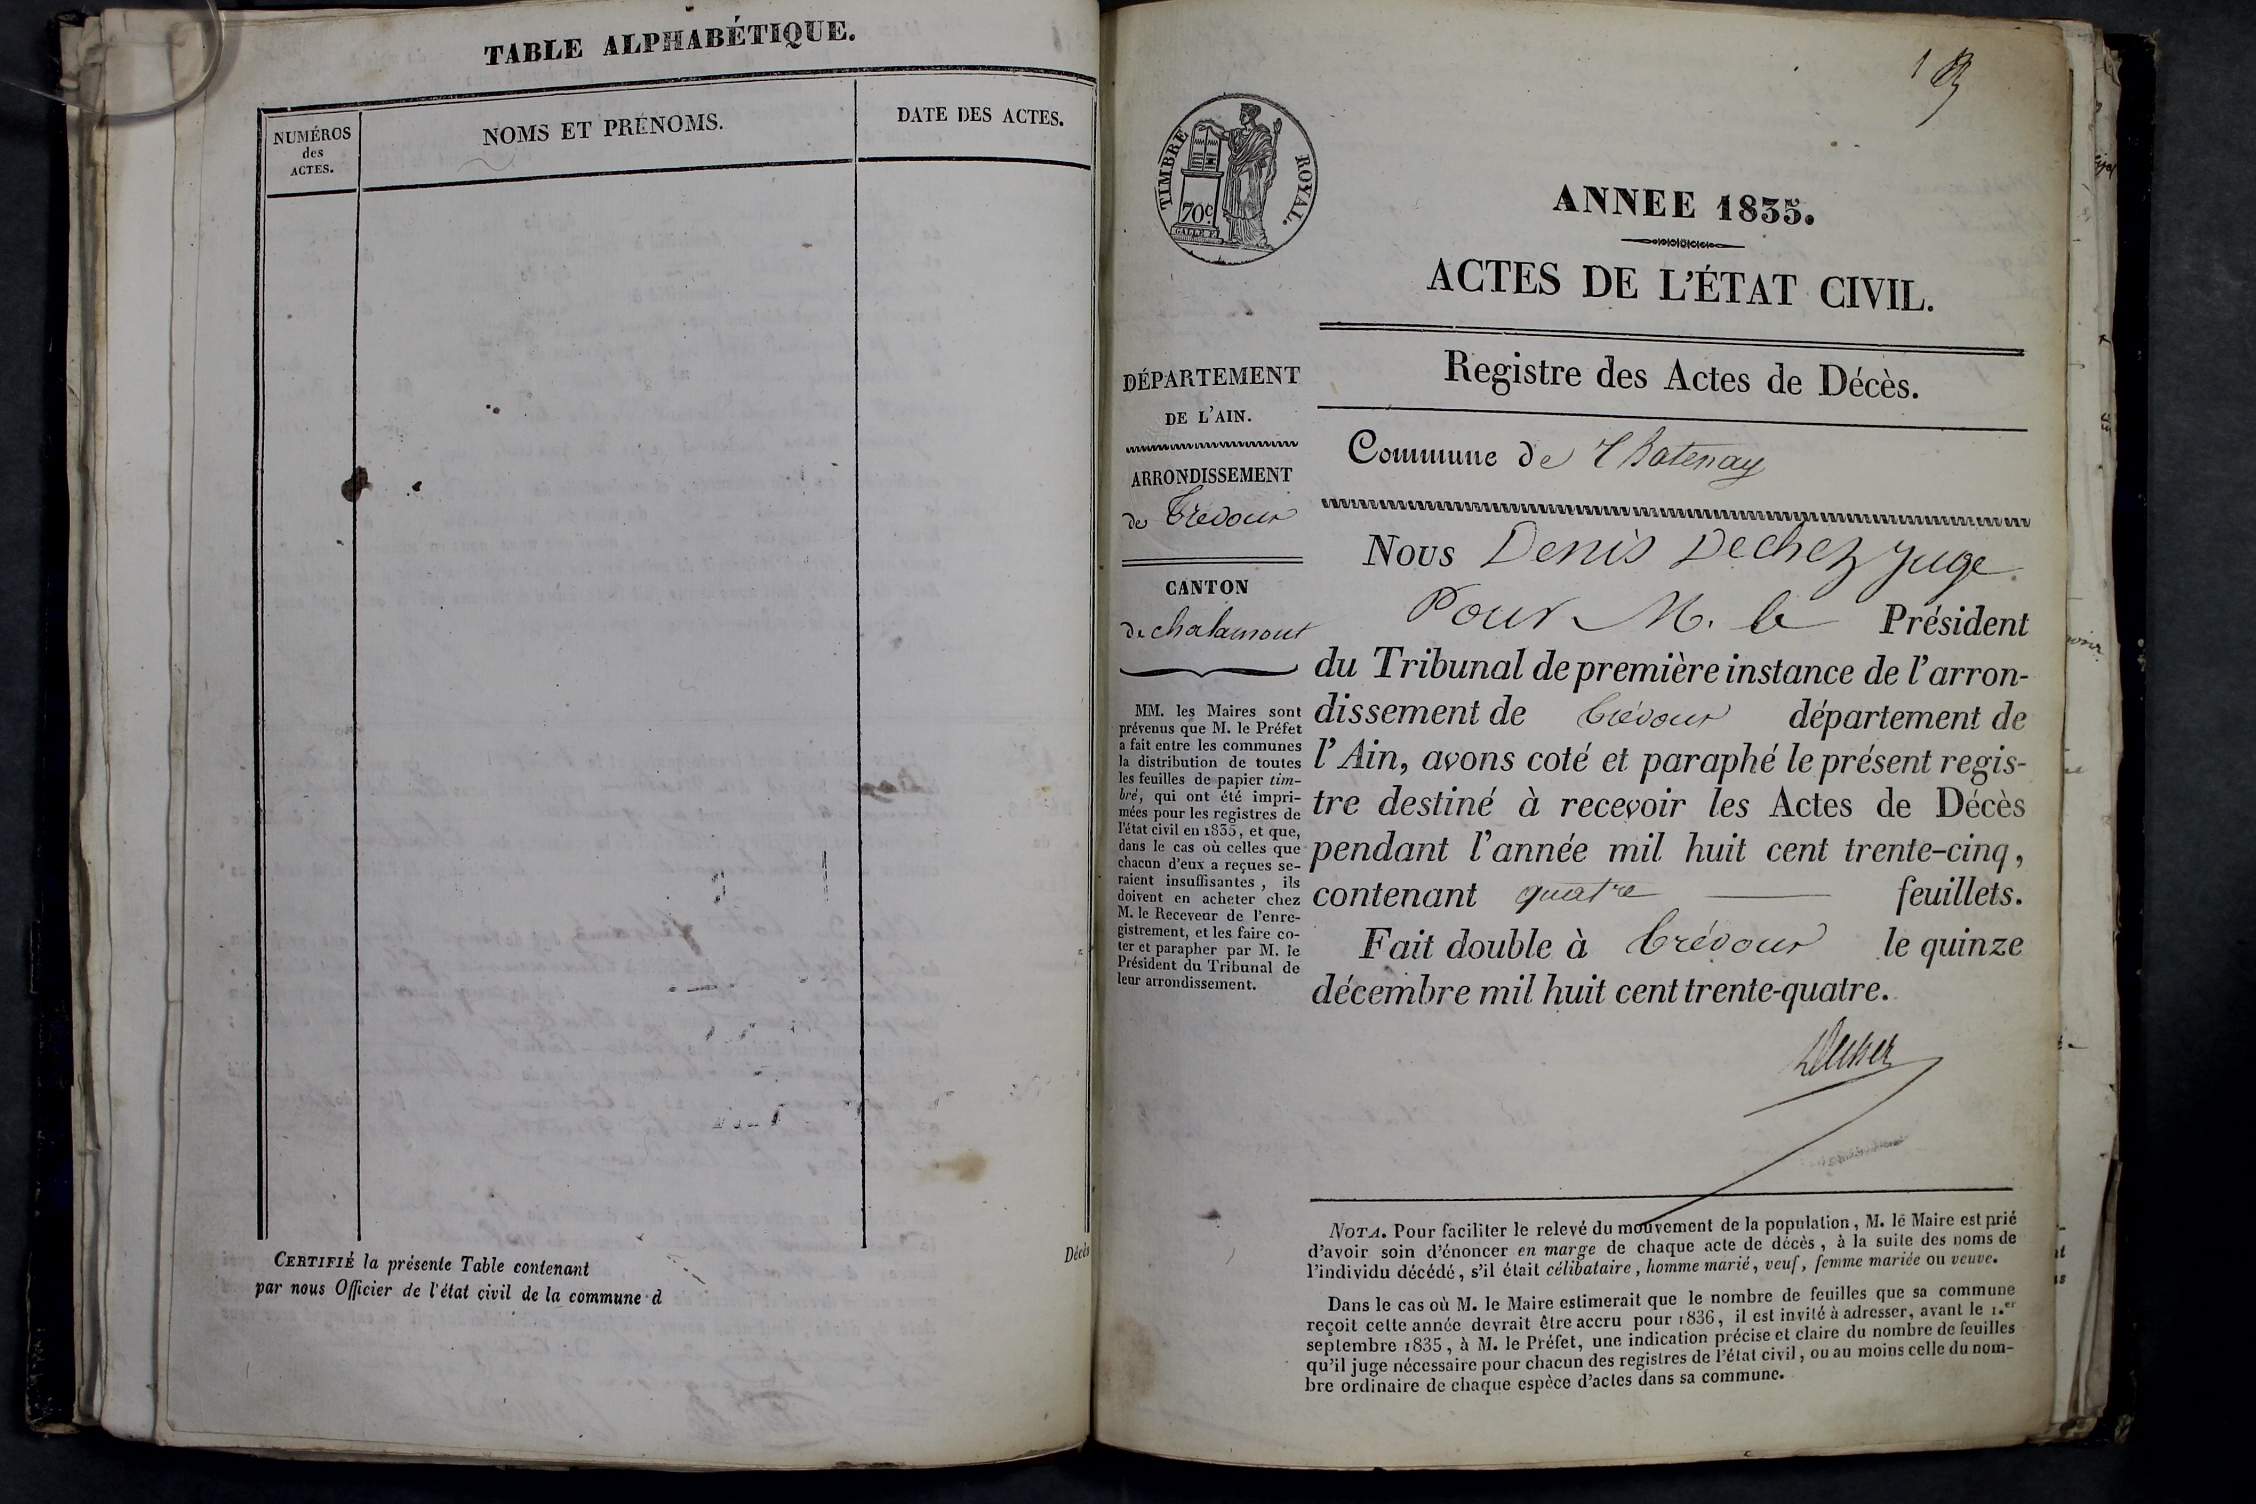 TABLE ALPHABÉTIQUE.
NUMÉROS
des
ACTES.
NOMS ET PRÉNOMS.
DATE DES ACTES.
CERTIFIÉ la présente Table contenant
Décès
par nous Officier de l'état civil de la commune d
1
TIMBRE ROYAL.
70c.
ANNEE 1835.
ACTES DE L'ÉTAT CIVIL.
DÉPARTEMENT
DE L'AIN.
ARRONDISSEMENT
de Trévoux
CANTON
de chalamont
MM. les Maires sont
prévenus que M. le Préfet
a fait entre les communes
la distribution de toutes
les feuilles de papier tim-
bré, qui ont été impri-
mées pour les registres de
l'état civil en 1835, et que,
dans le cas où celles que
chacun d'eux a reçues se-
raient insuffisantes, ils
doivent en acheter chez
M. le Receveur de l'enre-
gistrement, et les faire co-
ter et parapher par M. le
Président du Tribunal de
leur arrondissement.
Registre des Actes de Décès.
Commune de Chatenay
Nous Denis Dechez Juge
Pour M. le Président
du Tribunal de première instance de l'arron-
dissement de Trévoux département de
l'Ain, avons coté et paraphé le présent regis-
tre destiné à recevoir les Actes de Décès
pendant l'année mil huit cent trente-cinq,
contenant quatre feuillets.
Fait double à Trévoux le quinze
décembre mil huit cent trente-quatre.
Dechez
NOTA. Pour faciliter le relevé du mouvement de la population, M. le Maire est prié
d'avoir soin d'énoncer en marge de chaque acte de décès, à la suite des noms de
l'individu décédé, s'il était célibataire, homme marié, veuf, femme mariée ou veuve.
Dans le cas où M. le Maire estimerait que le nombre de feuilles que sa commune
reçoit cette année devrait être accru pour 1836, il est invité à adresser, avant le 1.er
septembre 1835, à M. le Préfet, une indication précise et claire du nombre de feuilles
qu'il juge nécessaire pour chacun des registres de l'état civil, ou au moins celle du nom-
bre ordinaire de chaque espèce d'actes dans sa commune.